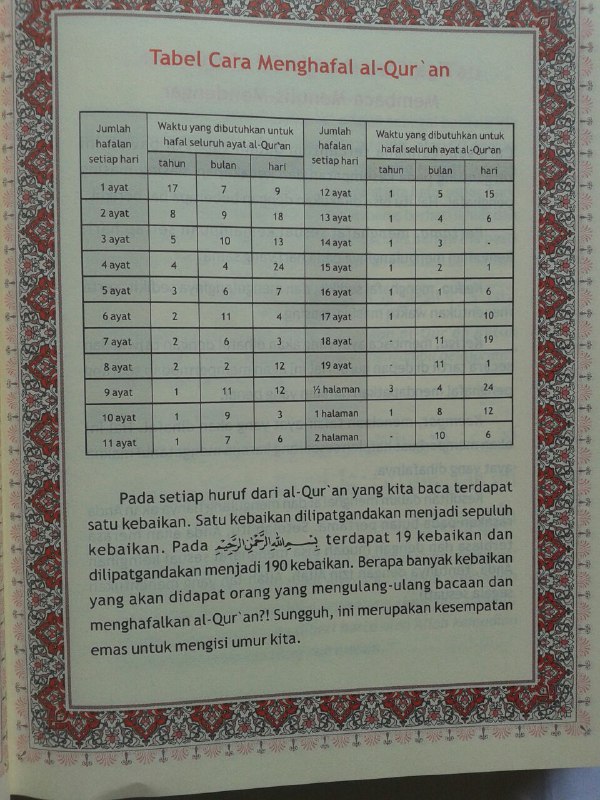 Tabel Cara Menghafal al-Qur`an
Jumlah hafalan setiap hari | Waktu yang dibutuhkan untuk hafal seluruh ayat al-Qur'an | Jumlah hafalan setiap hari | Waktu yang dibutuhkan untuk hafal seluruh ayat al-Qur'an
tahun | bulan | hari | tahun | bulan | hari
1 ayat | 17 | 7 | 9 | 12 ayat | 1 | 5 | 15
2 ayat | 8 | 9 | 18 | 13 ayat | 1 | 4 | 6
3 ayat | 5 | 10 | 13 | 14 ayat | 1 | 3 | -
4 ayat | 4 | 4 | 24 | 15 ayat | 1 | 2 | 1
5 ayat | 3 | 6 | 7 | 16 ayat | 1 | 1 | 6
6 ayat | 2 | 11 | 4 | 17 ayat | 1 | | 10
7 ayat | 2 | 6 | 3 | 18 ayat | - | 11 | 19
8 ayat | 2 | 2 | 12 | 19 ayat | - | 11 | 1
9 ayat | 1 | 11 | 12 | ½ halaman | 3 | 4 | 24
10 ayat | 1 | 9 | 3 | 1 halaman | 1 | 8 | 12
11 ayat | 1 | 7 | 6 | 2 halaman | - | 10 | 6
Pada setiap huruf dari al-Qur`an yang kita baca terdapat
satu kebaikan. Satu kebaikan dilipatgandakan menjadi sepuluh
kebaikan. Pada بسم الله الرحمن الرحيم terdapat 19 kebaikan dan
dilipatgandakan menjadi 190 kebaikan. Berapa banyak kebaikan
yang akan didapat orang yang mengulang-ulang bacaan dan
menghafalkan al-Qur`an?! Sungguh, ini merupakan kesempatan
emas untuk mengisi umur kita.